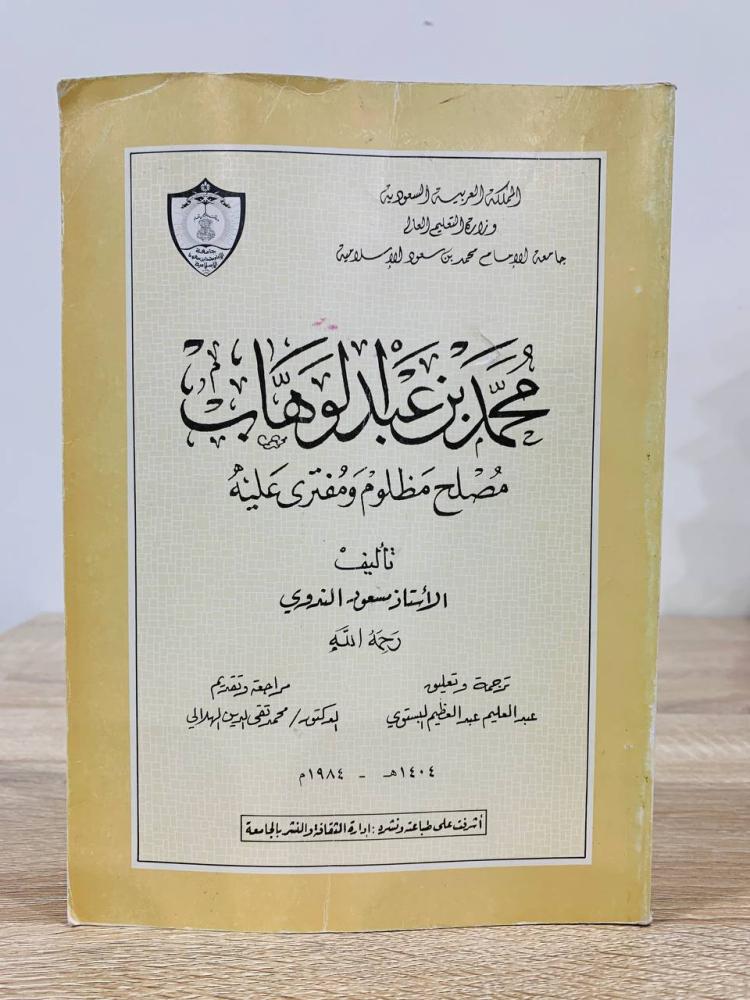 المملكة العربية السعودية
وزارة التعليم العالي
جامعة الإمام محمد بن سعود الإسلامية
جامعة
الإمام محمد بن سعود
الإسلامية
مُحَمَّد بن عَبْد الوَهَّاب
مُصْلح مَظلُوم وَمُفترى عَليْهُ
تأليف
الأستاذ مسعود الندوي
رَحِمَهُ اللَّه
ترجمة وتعليق
عبد العليم عبد العظيم البستوي
مراجعة وتقديم
الدكتور/ محمد تقي الدين الهلالي
١٤٠٤هـ - ١٩٨٤م
أشرفت على طباعته ونشره : إدارة الثقافة والنشر بالجامعة